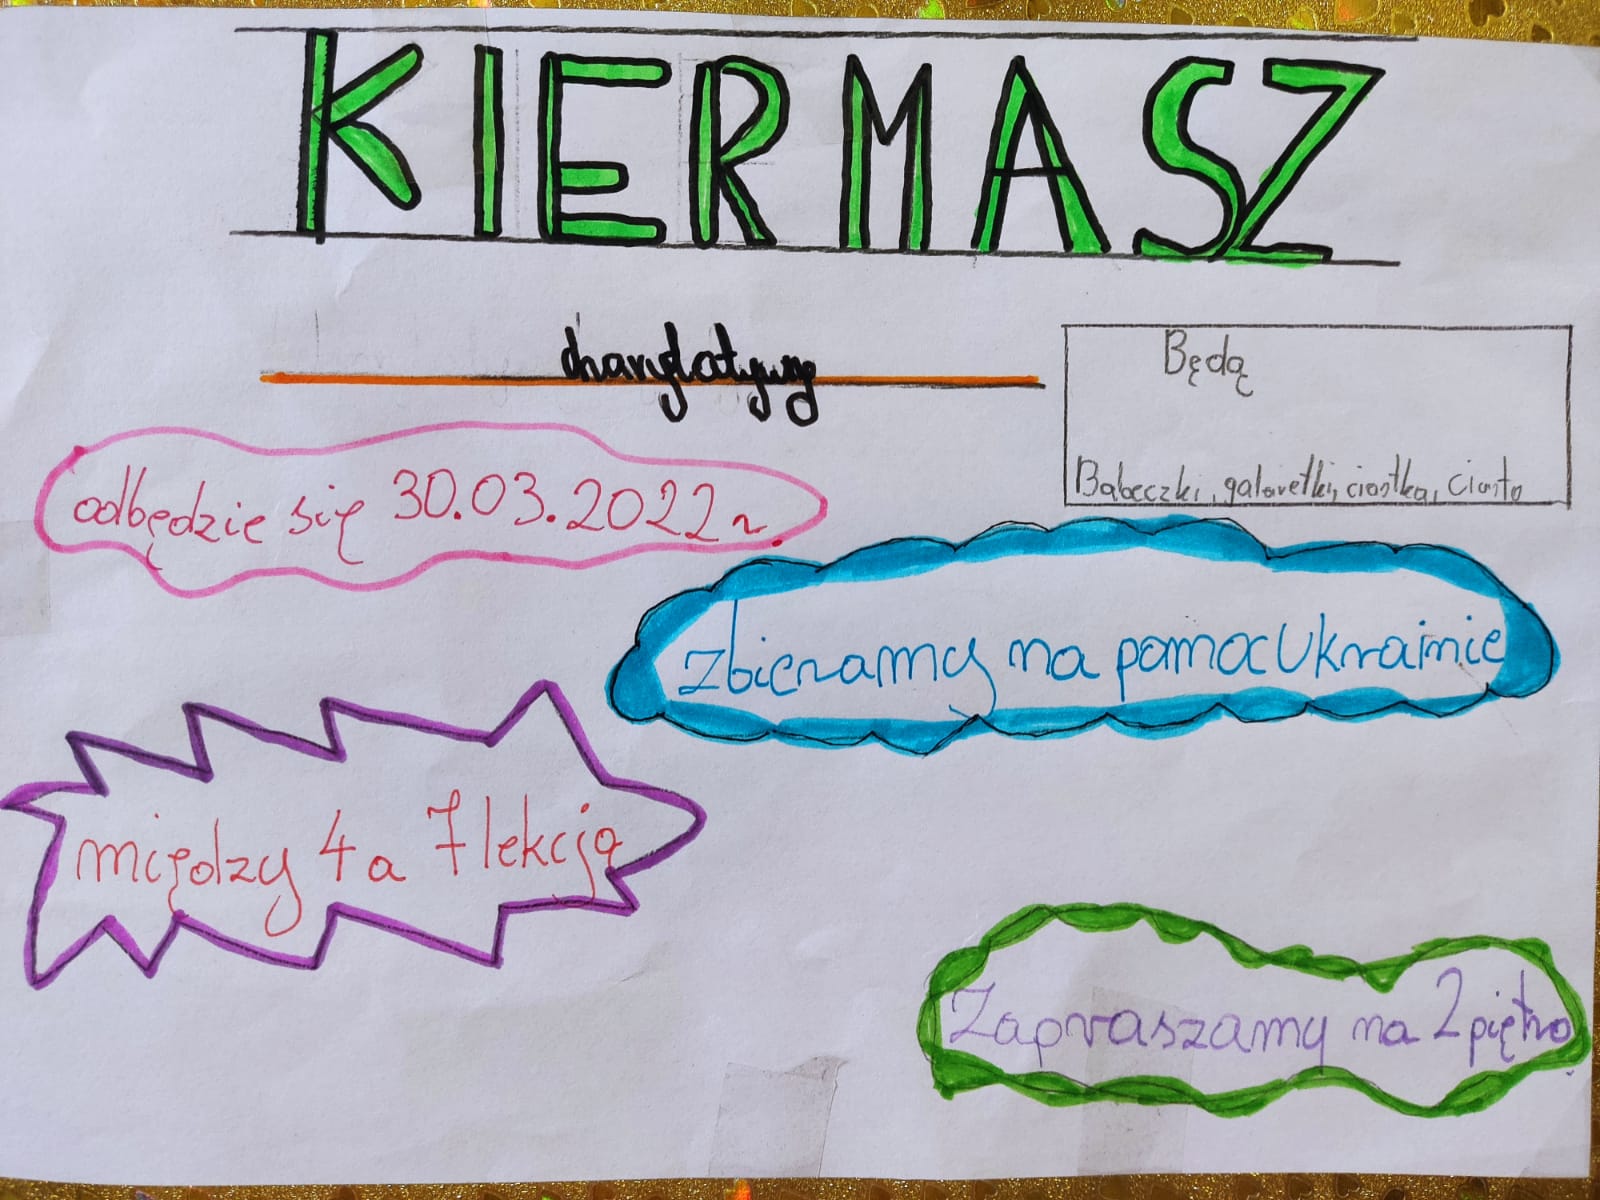 KIERMASZ
charytatywny
Będą
Babeczki, galaretki, ciastka, ciasto
odbędzie się 30.03.2022 r.
zbieramy na pomoc Ukrainie
między 4 a 7 lekcją
Zapraszamy na 2 piętro